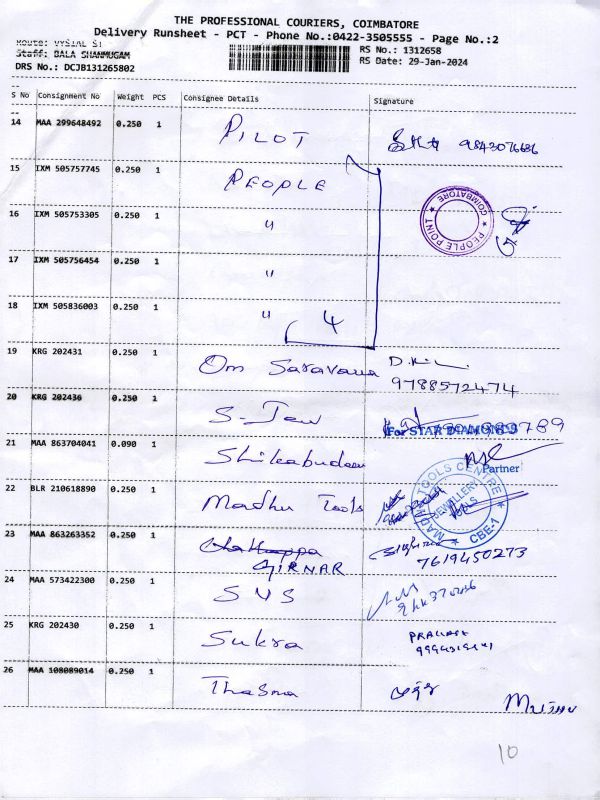 THE PROFESSIONAL COURIERS, COIMBATORE
Delivery Runsheet - PCT - Phone No.:0422-3505555 - Page No.:2
Route: VYSIAL ST
Staff: BALA SHANMUGAM
RS No.: 1312658
DRS No.: DCJB131265802
RS Date: 29-Jan-2024
S No Consignment No Weight PCS Consignee Details Signature
14 MAA 299648492 0.250 1 PILOT 9843076686
15 IXM 505757745 0.250 1 PEOPLE
PEOPLE POINT COIMBATORE
16 IXM 505753305 0.250 1 "
17 IXM 505756454 0.250 1 "
18 IXM 505836003 0.250 1 " 4
19 KRG 202431 0.250 1 Om Saravana
9788572474
20 KRG 202436 0.250 1 S-Jew
For STAR DIAMONDS
21 MAA 863704041 0.090 1 Shikabudeen
Partner
22 BLR 210618890 0.250 1 Madhu Tools
MADHU TOOLS CENTRE CBE-1
JEWELLERY TOOLS
23 MAA 863263352 0.250 1
GIRNAR 7619450273
24 MAA 573422300 0.250 1 SVS
25 KRG 202430 0.250 1 Sukra
26 MAA 108089014 0.250 1
10